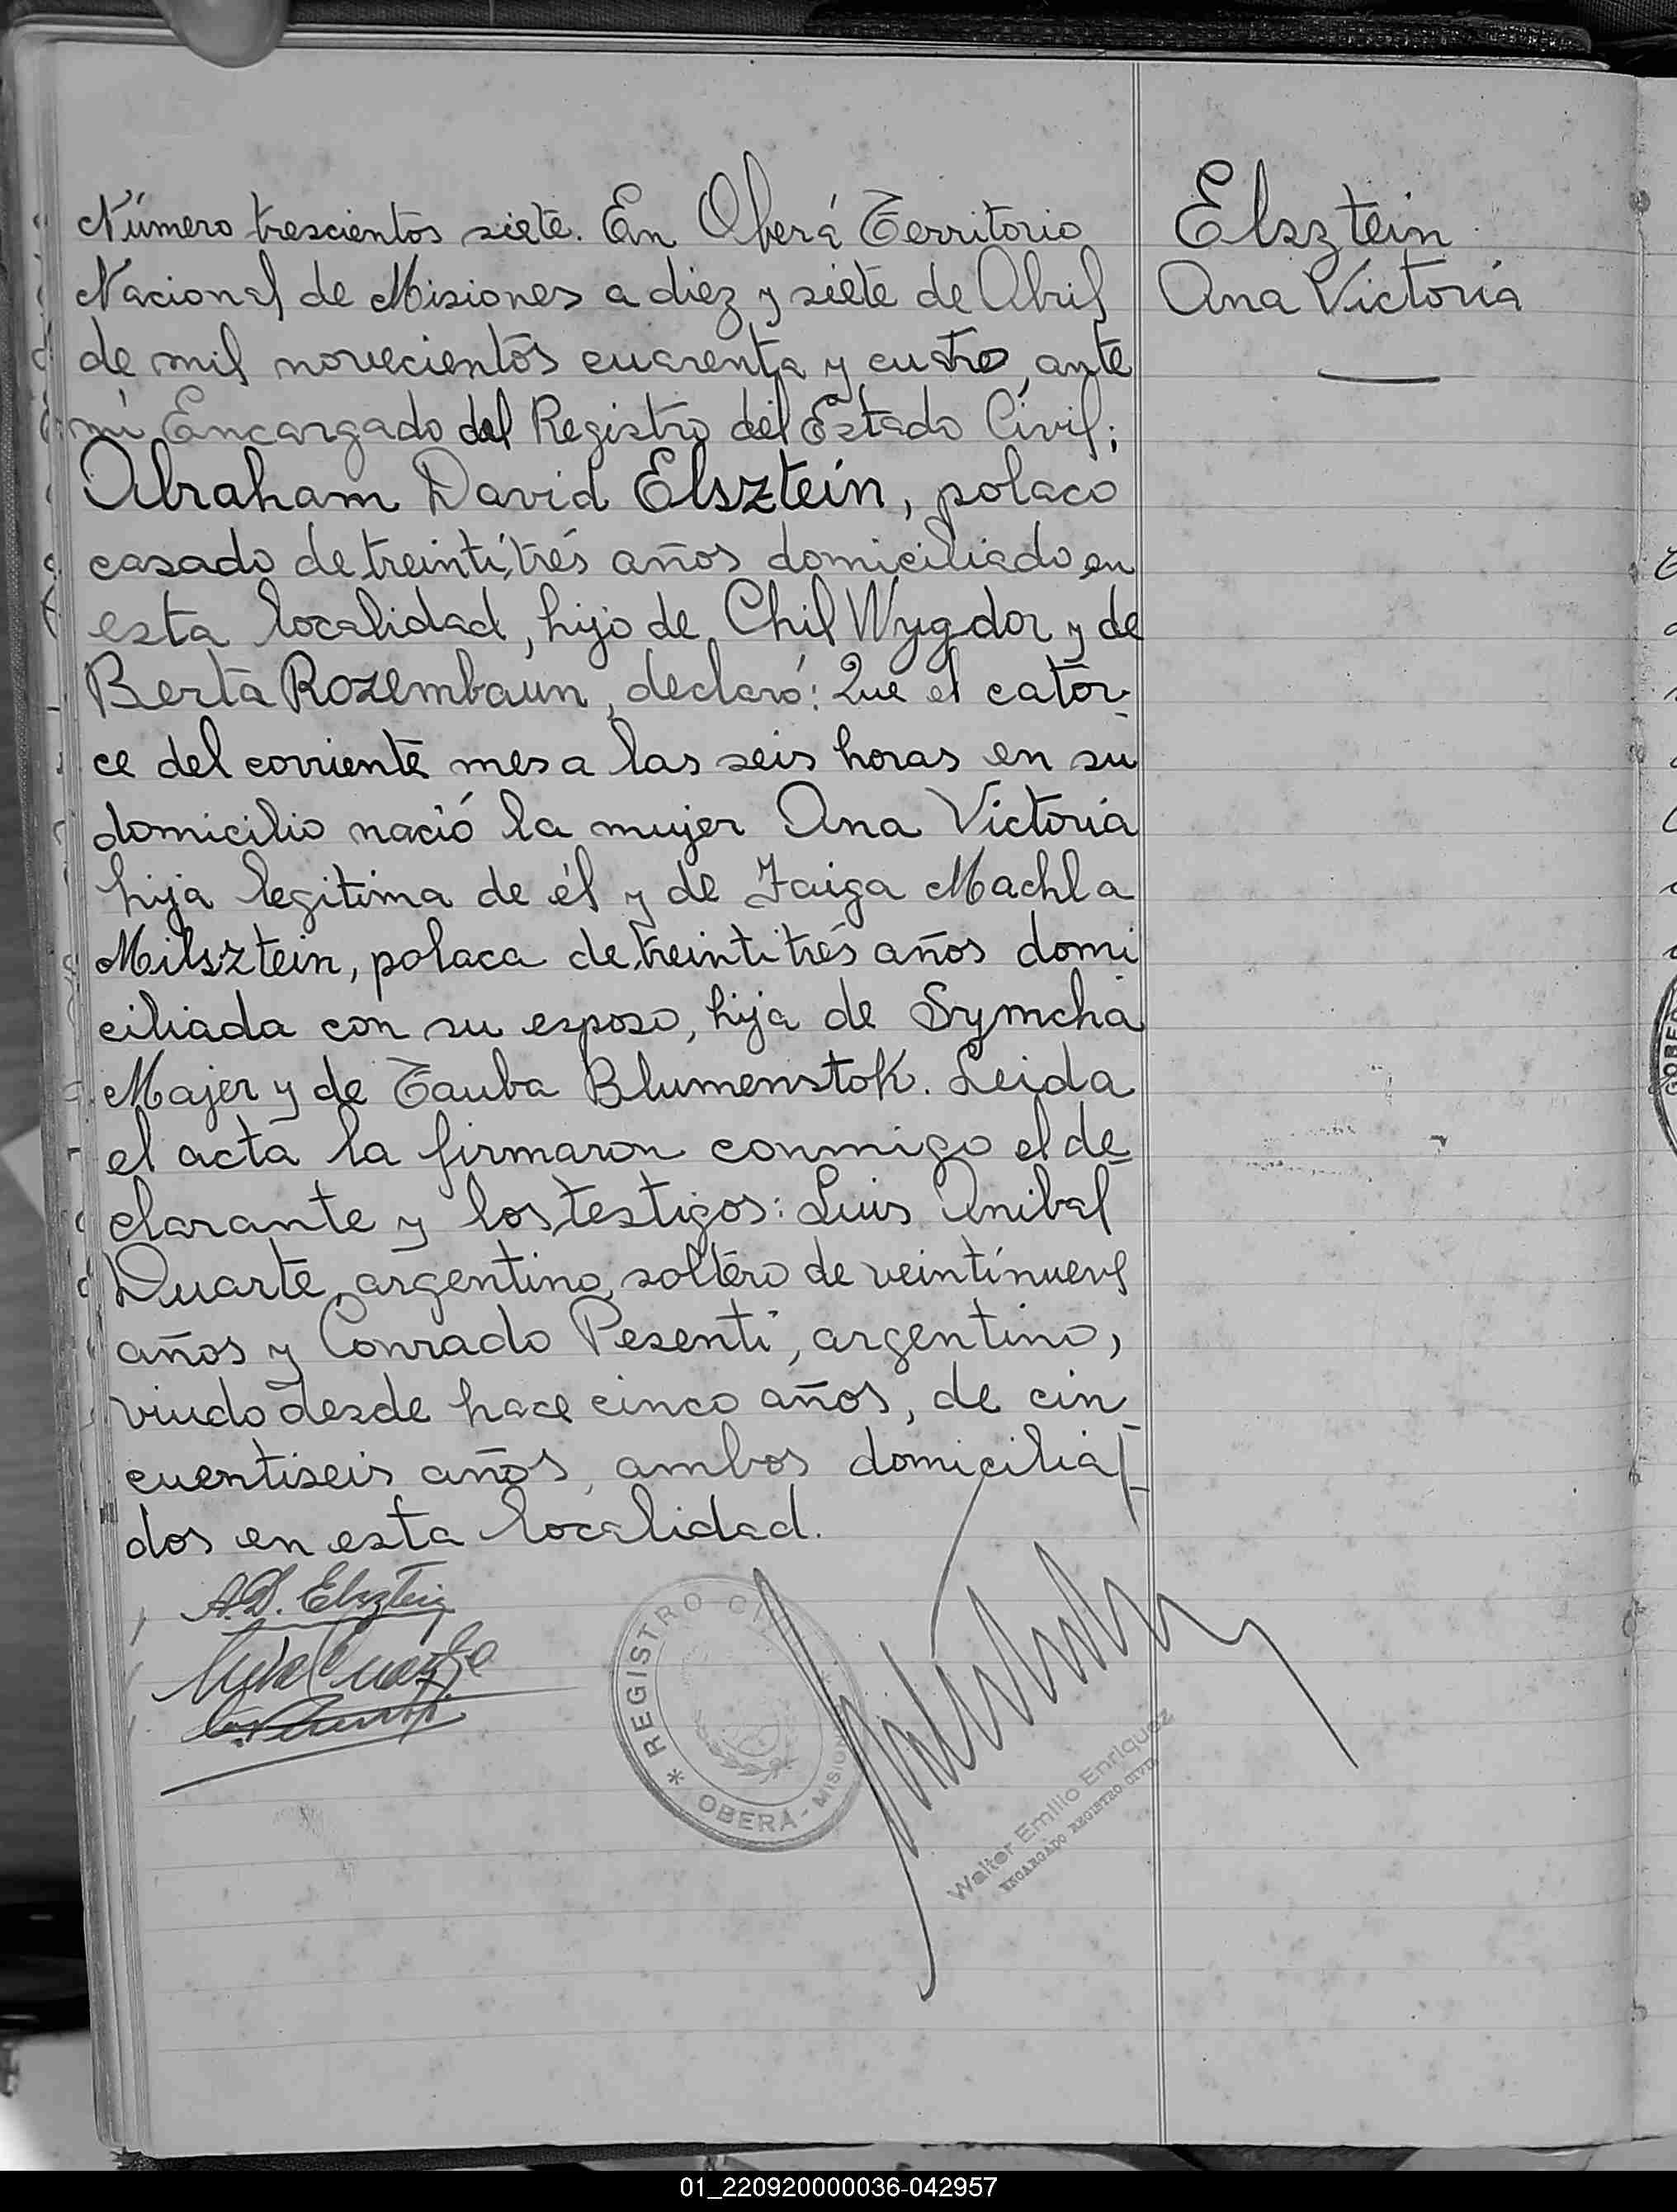 Número trescientos siete. En Oberá Territorio
Nacional de Misiones a diez y siete de Abril
de mil novecientos cuarenta y cuatro, ante
mi Encargado del Registro del Estado Civil;
Abraham David Elsztein, polaco
casado de treinti,trés años domiciliado en
esta localidad, hijo de Chil Wygdor y de
Berta Rozembaun, declaró: Que el cator-
ce del corriente mes a las seis horas en su
domicilio nació la mujer Ana Victoria
hija legitima de él y de Faiga Machla
Milsztein, polaca de treinti trés años domi
ciliada con su esposo, hija de Symcha
Majer y de Tauba Blumenstok. Leida
el acta la firmaron conmigo el de
clarante y los testigos: Luis Anibal
Duarte, argentino, soltero de veintinueve
años y Conrado Pesenti, argentino,
viudo desde hace cinco años, de cin
cuentiseis años, ambos domicilia-
dos en esta localidad.
Elsztein
Ana Victoria
A.D. Elsztein
REGISTRO CIVIL
OBERÁ - MISIONES
Walter Emilio Enriquez
ENCARGADO REGISTRO CIVIL
01_220920000036-042957